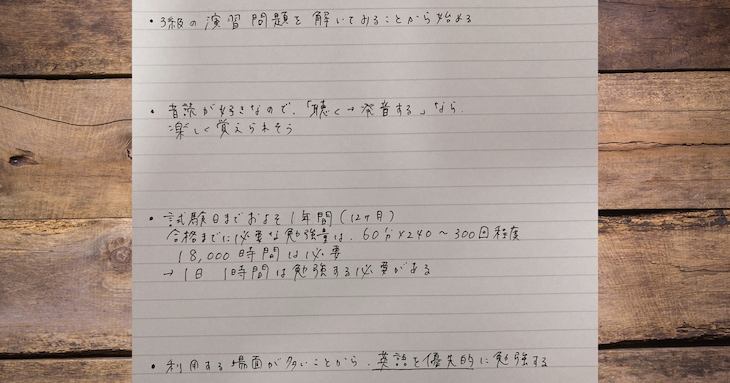 ・3級の演習問題を解いてみることから始める
・音読が好きなので、「聴く→発音する」なら
楽しく覚えられそう
・試験日までおよそ1年間(12ヶ月)
合格までに必要な勉強量は、60分×240〜300回程度
18,000時間は必要
→1日 1時間は勉強する必要がある
・利用する場面が多いことから、英語を優先的に勉強する